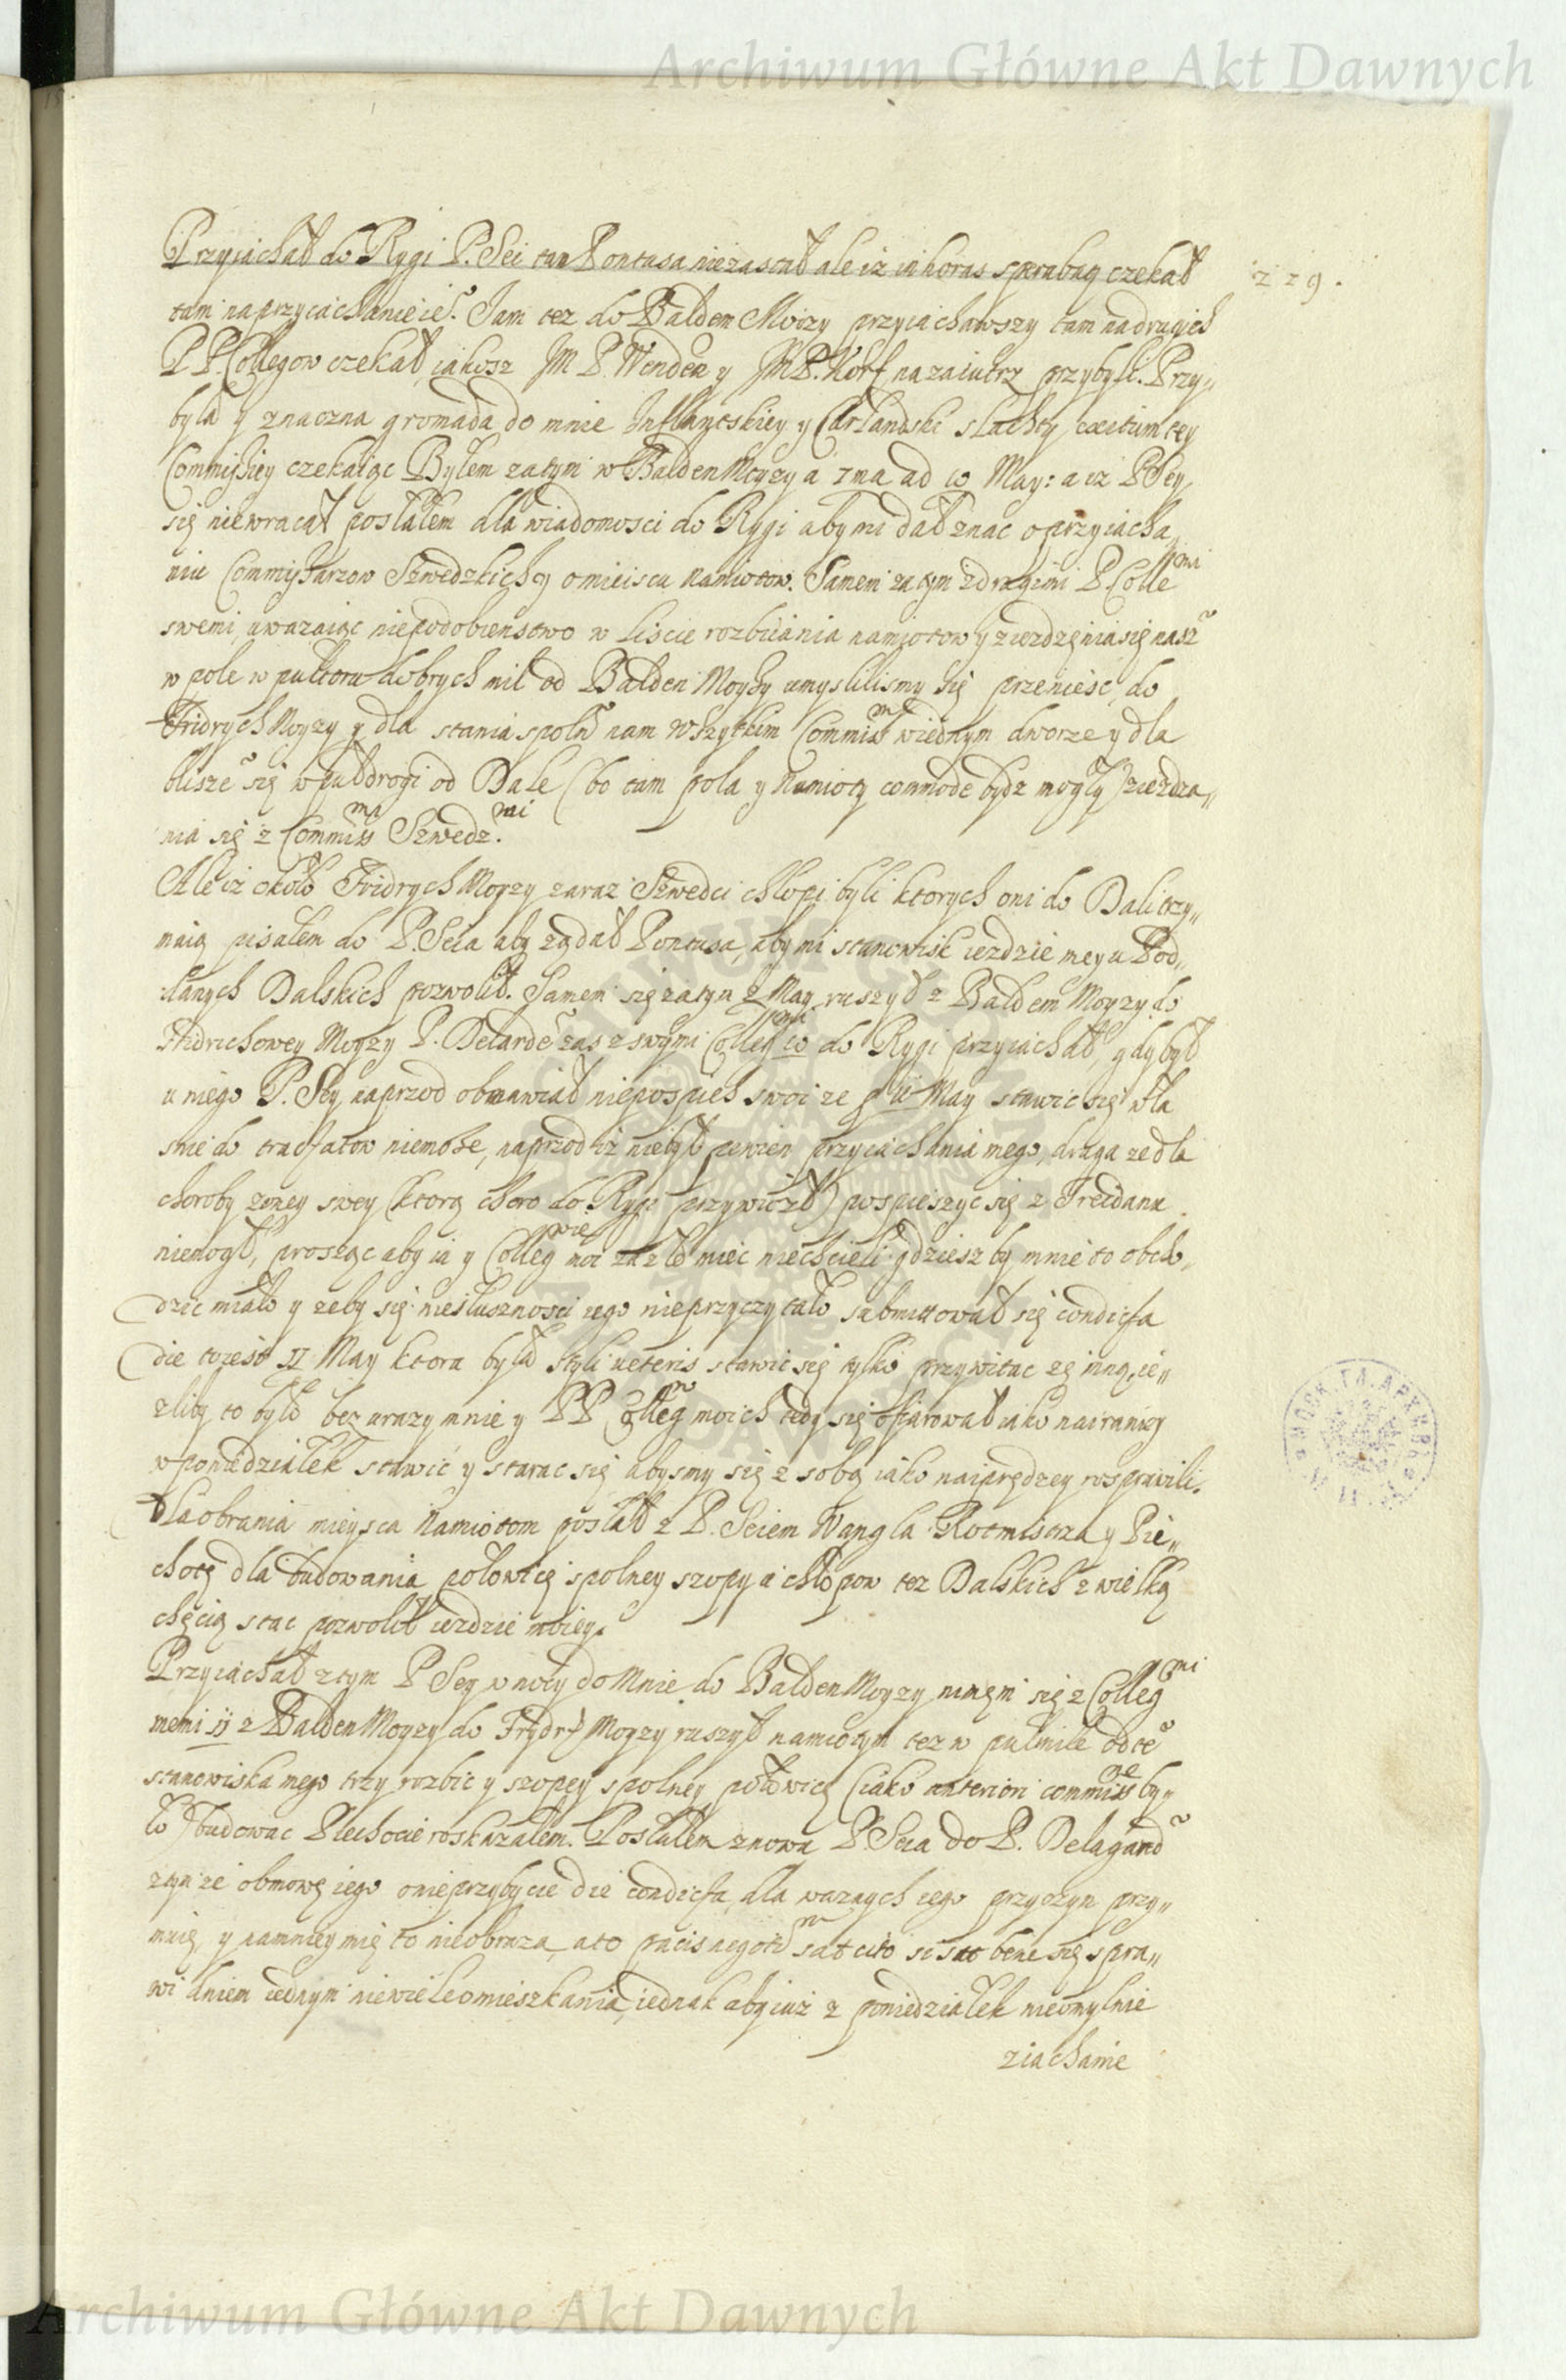 Archiwum Główne Akt Dawnych
229.
Przyiachał do Rygi P. Sei tam Pontusa niezastał ale iż in horas sperabaq czekał
tam naprzyiachanieie°. Jam tez do Balden Moizy przyiachawszy tam nadrugich
PP. Collegow czekał, iakosz JM P. Wenden y JM P. Korf nazaiutrz przybyli. Przy„
była y znaczna gromada do mnie Inflantskiey y Curlandski slachty exitum tey
Commissiey czekaiąc Byłem zatym w Balden Moyzy a 7ma ad 10 May: a iz P Sey
się niewracał posłałem dla wiadomosci do Rygi aby mi dał znac o przyiacha„
niu Commissarzow Szwedzkich y o mieiscu namiotow. Samem zatym zdrugimi P Colle mi
swemi, uwazaiąc niepodobienstwo w Liscie rozbiiania namiotow y ziezdzeniasię nasz°
w pole w pułtoru dobrych mil od Balden Moyzy umyslilismy się przeniesc do
Fridrych Moyzy y dla stania społn° nam wszytkim Commiss wiednym dworze y dla
blisze° się w puł drogi od Dale (bo tam pola y namioty commode bydz mogły) ziezdza„
nia się z Commiss mi Szwedz. mi
Ale iż około Fridrych Moyzy zaraz Szwedci chłopi byli ktorych oni do Dali trzy„
maią pisałem do P. Seia aby ządał Pontusa, aby mi stanowisk iezdzie mey u Pod„
danych Dalskich pozwolił. Samem się zatym z May ruszył z Baldem Moyzy do
Fridrichowey Moyzy P. Delarde° zas z swymi Colleg mi 10 do Rygi przyiachał, gdy był
u niego P. Sey naprzod obmawiał niepospiech swoi ze p° 11 May stawic się wła
snie do tractatow niemoze, naprzod iż niebył pewien przyiachania mego, druga ze dla
choroby zoney swey (ktorą choro do Rygi przywiozł) pospieszyc się z Treidanu
niemogł, prosząc aby ia y Colleg owie moi za złe miec niechcieli gdziesz by mnie to obcho„
dzic miało y zeby się niesłusznosci iego nieprzyczytało submittował się condicta
die toiest 11 May ktora była styli ueteris stawic się tylko przywitac ze mną, ie„
zliby to było bez urazy mnie y PP Colleg w moich tedy się ofiarował iako nairaniey
w poniedziałek stawić y starac się abysmy się z sobą iako naiprędzey rosprawili.
Dla obrania mieysca namiotom posłał z P. Seiem Wangla Rotmistrza y Pie„
chotę dla budowania połowicę spolney szopy a chłopow tez Dalskich z wielką
chęcią stac pozwolił iezdzie moiey.
Przyiachał ztym P Sey w nocy do Mnie do Balden Moyzy mnęm się z Colleg mi
memi 11 z Balden Moyzy do Frydr Moyzy ruszył namiotym tez w pułmile od te°
stanowiska mego trzy rozbic y szopęy spolney połowicę (iako anteriori commiss ne by„
ło) budowac Piechocie roskazałem. Posłałem znowu P. Seia do P. Delagard°
ztym ze obmowę iego o nieprzybycie die condicta, dla waznych iego przyczyn przy„
muię, y namniey mię to nieobraza, a to pacis negotiu m sat cito si sat bene się spra„
wi dniem iednym niewieleomieszkania, iednak aby iuż z poniedziałek nieomylnie
ziachanie
Archiwum Główne Akt Dawnych